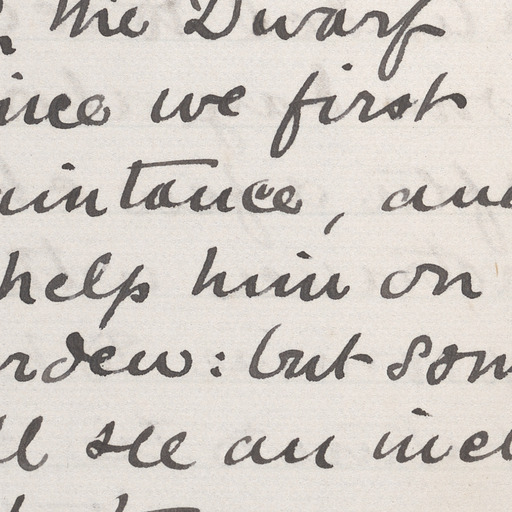 the Dwarf
ince we first
aintance, and
help him on
rden: but som
ll see an incl